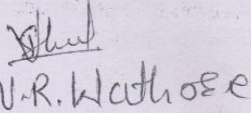 V.R. Wathore